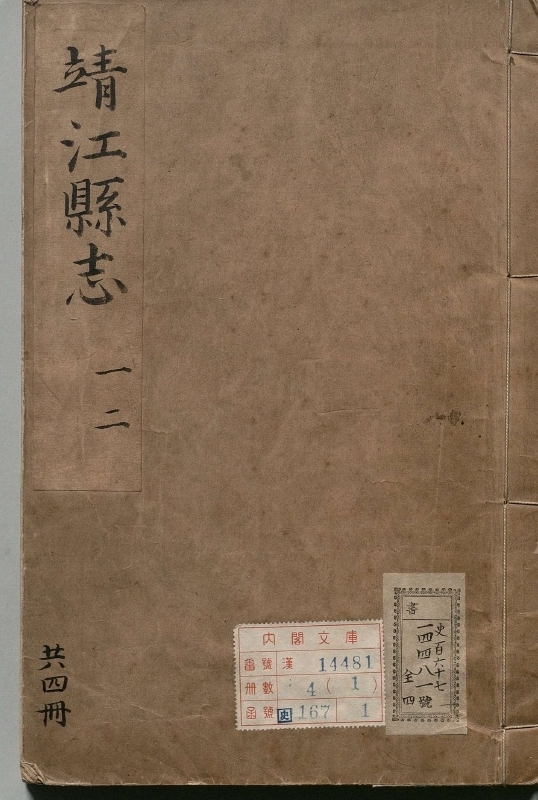 靖江縣志
一二
共四冊
內閣文庫
番號 漢 14481
冊數 4 ( 1 )
函號 史 167 1
書
史百六十七
一四四八一號
全四